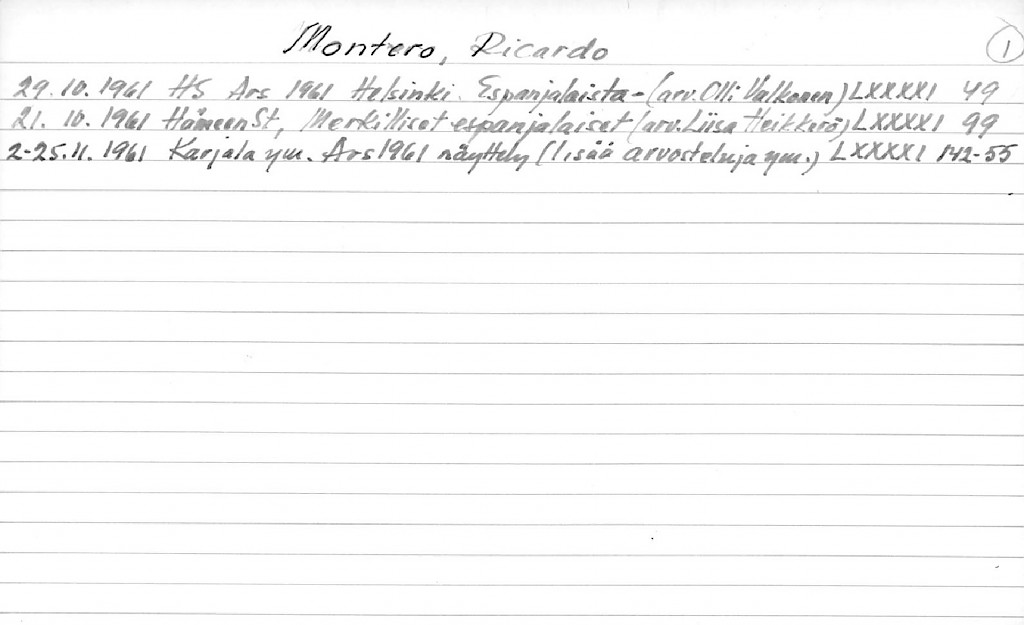 Montero, Ricardo 1
29.10.1961 HS Ars 1961 Helsinki. Espanjalaista - (arv. Olli Valkonen) LXXXXI 49
21.10.1961 HämeenSt, Merkilliset espanjalaiset (arv. Liisa Heikkerö) LXXXXI 99
2-25.11.1961 Karjala ym. Ars1961 näyttely (lisää arvosteluja ym.) LXXXXI 142-55